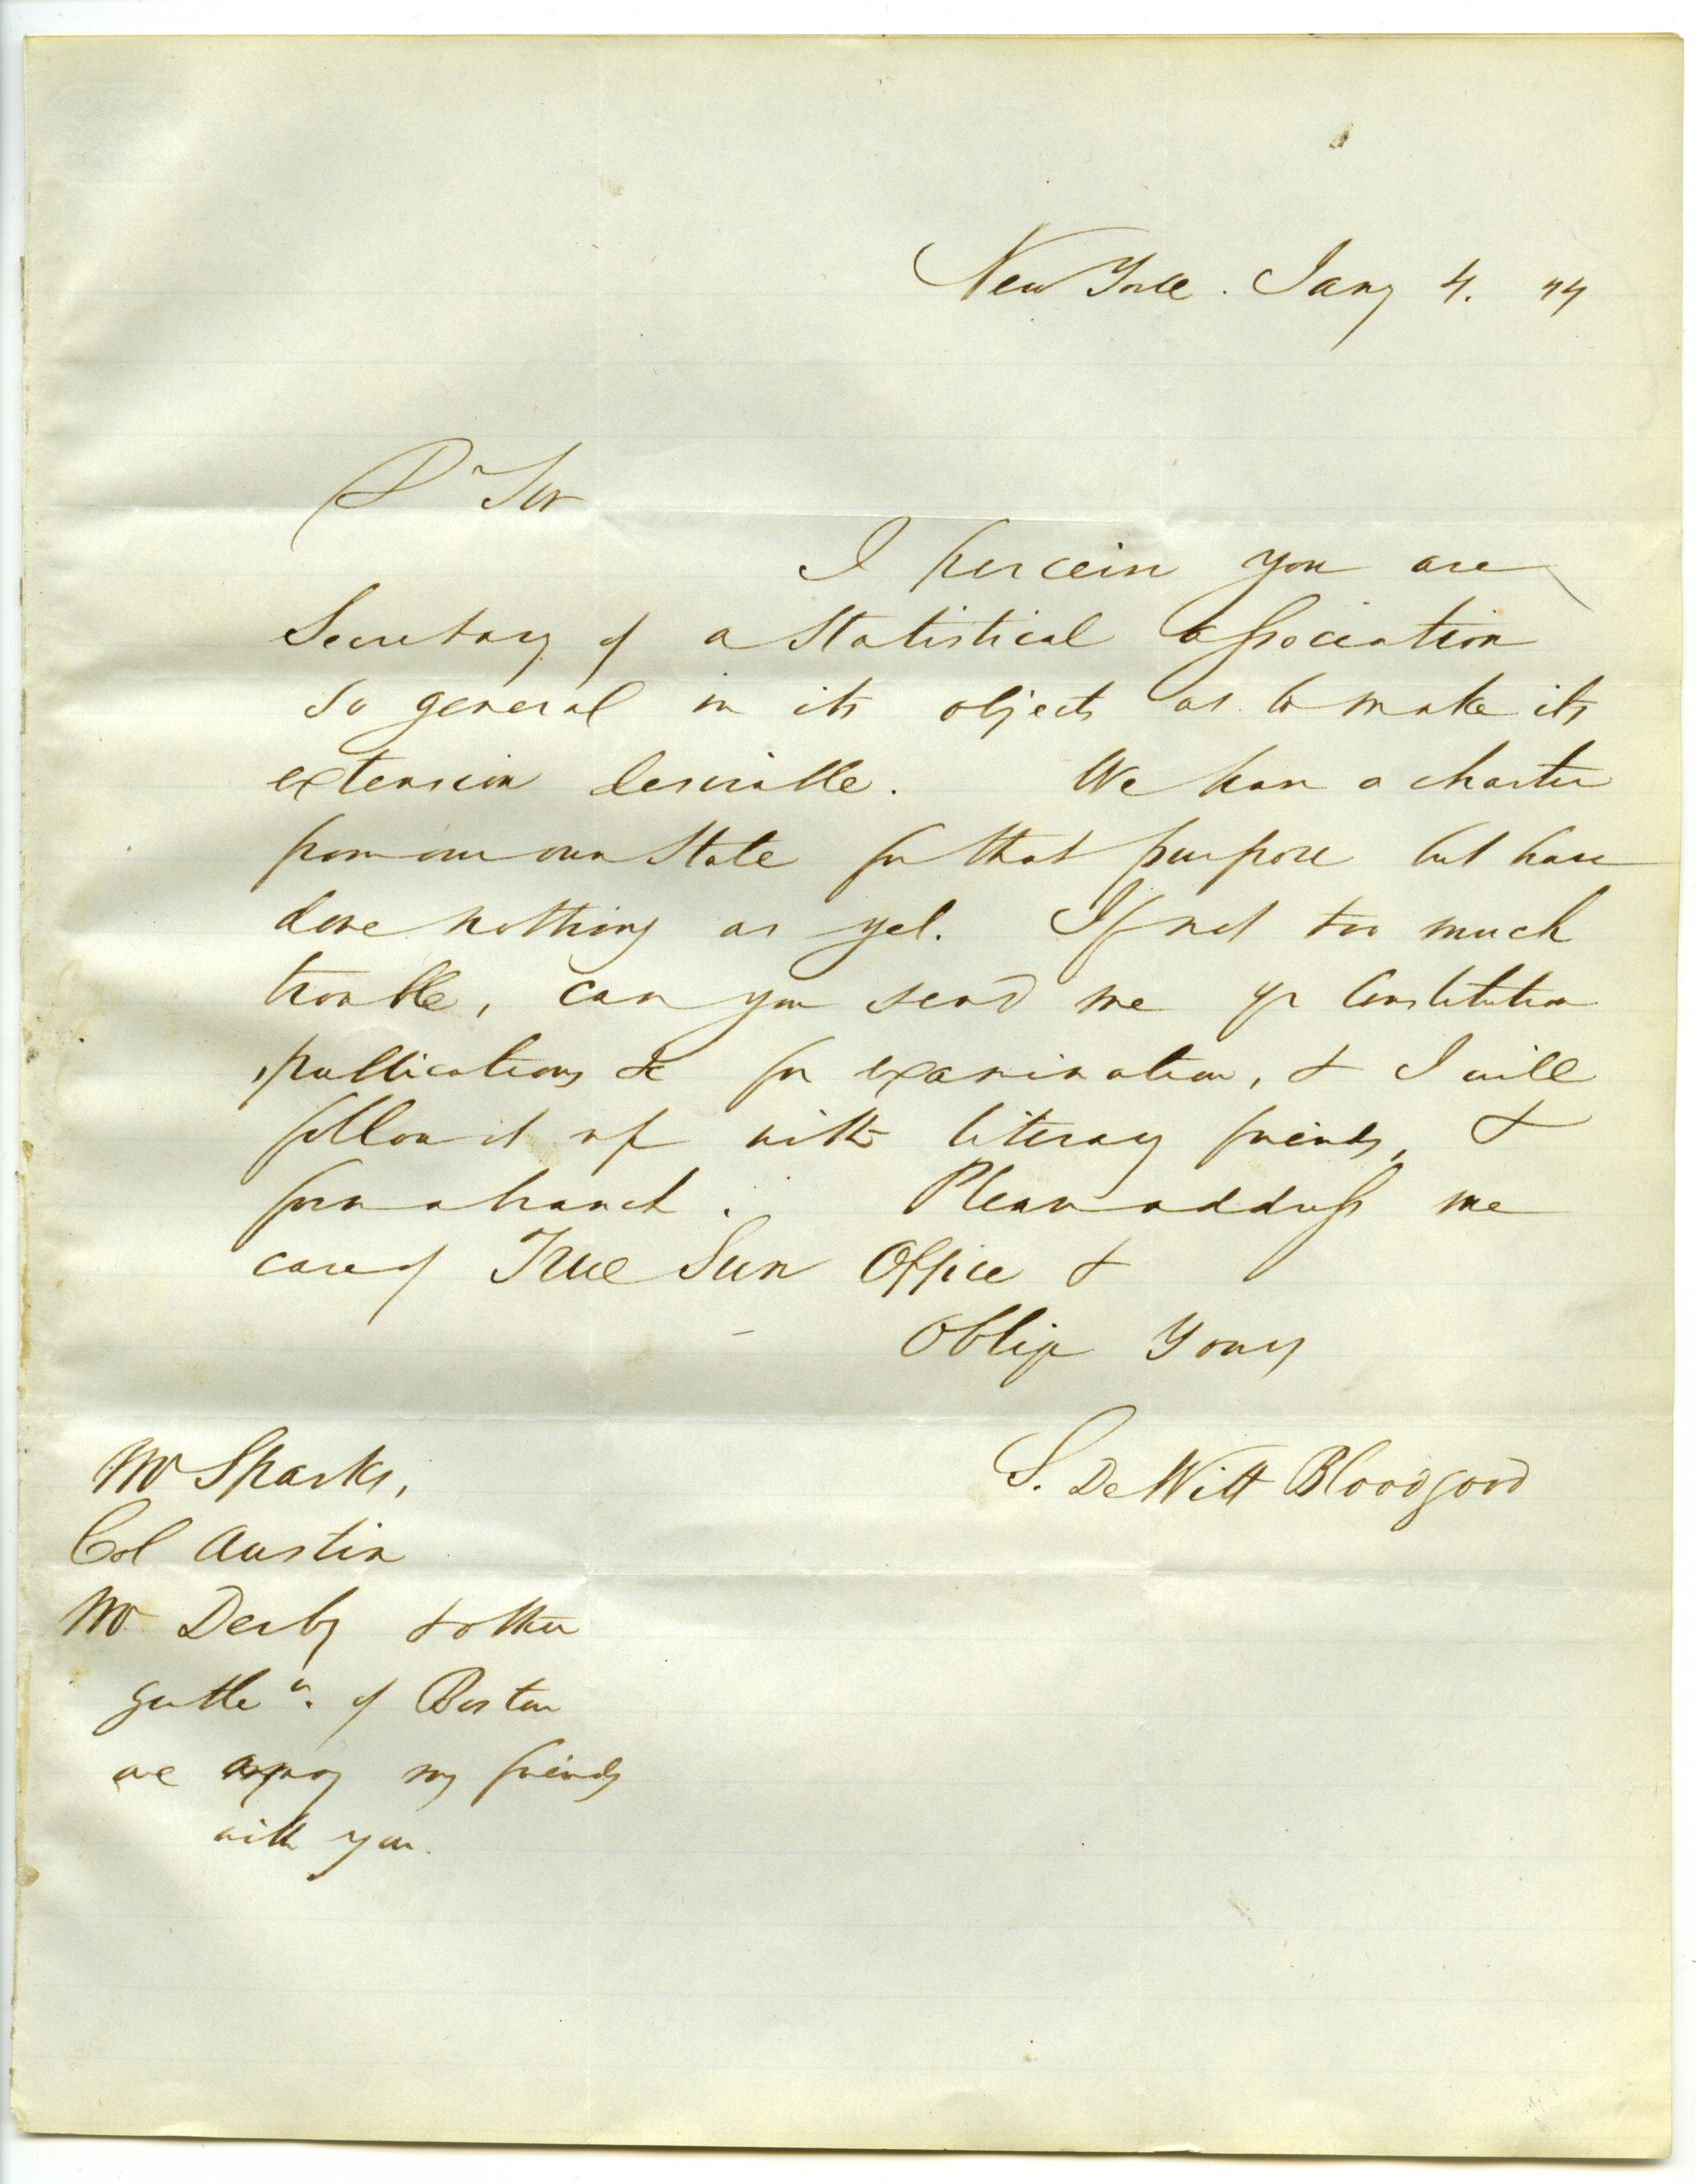 New York. Jany 4. 44
Dr Sir
I perceive you are
Secretary of a Statistical association
so general in its objects as to make its
extension desirable. We have a charter
from our own State for that purpose but have
done nothing as yet. If not too much
trouble, can you send me yr Constitution
publications &c for examination, & I will
follow it up with literary friends, &
form a branch. Please address me
care of True Sun Office &
Oblige Yours
S. De Witt Bloodgood
Mr Sparks,
Col Austin
Mr Derby & other
gentlen. of Boston
are among my friends
with you.